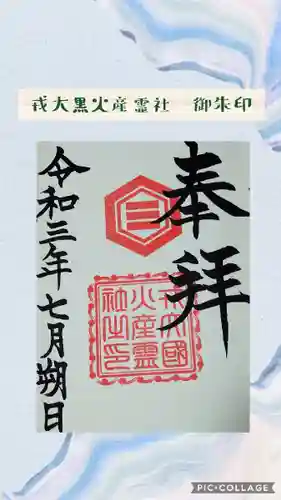 戎大黒火産霊社 御朱印
奉拝
戎大國
火産霊
社之印
令和三年七月朔日
PIC•COLLAGE